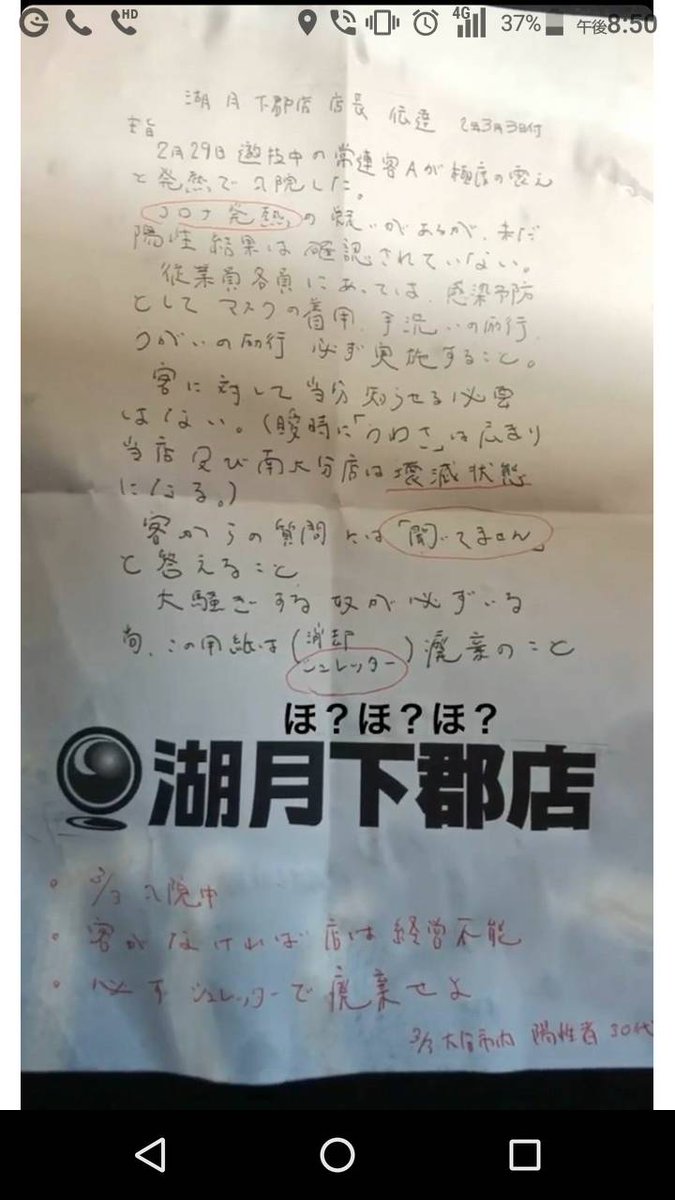 HD
4G
37%
午後8:50
湖月下郡店 店長 伝達 2年3月3日付
主旨
2月29日 遊技中の常連客Aが極度の震え
と発熱で入院した。
コロナ発熱の疑いがあるが、未だ
陽性結果は確認されていない。
従業員各員にあっては、感染予防
として マスクの着用、手洗いの励行、
うがいの励行 必ず実施すること。
客に対して当分知らせる必要
はない。(瞬時に「うわさ」は広まり
当店及び南大分店は壊滅状態
になる。)
客からの質問には「聞いてません」
と答えること
大騒ぎする奴が必ずいる
尚、この用紙は(消却
シュレッター)廃棄のこと
ほ？ほ？ほ？
湖月下郡店
・3/3 入院中
・客がなければ店は経営不能
・必ずシュレッターで廃棄せよ
3/3 大分市内 陽性者 30代